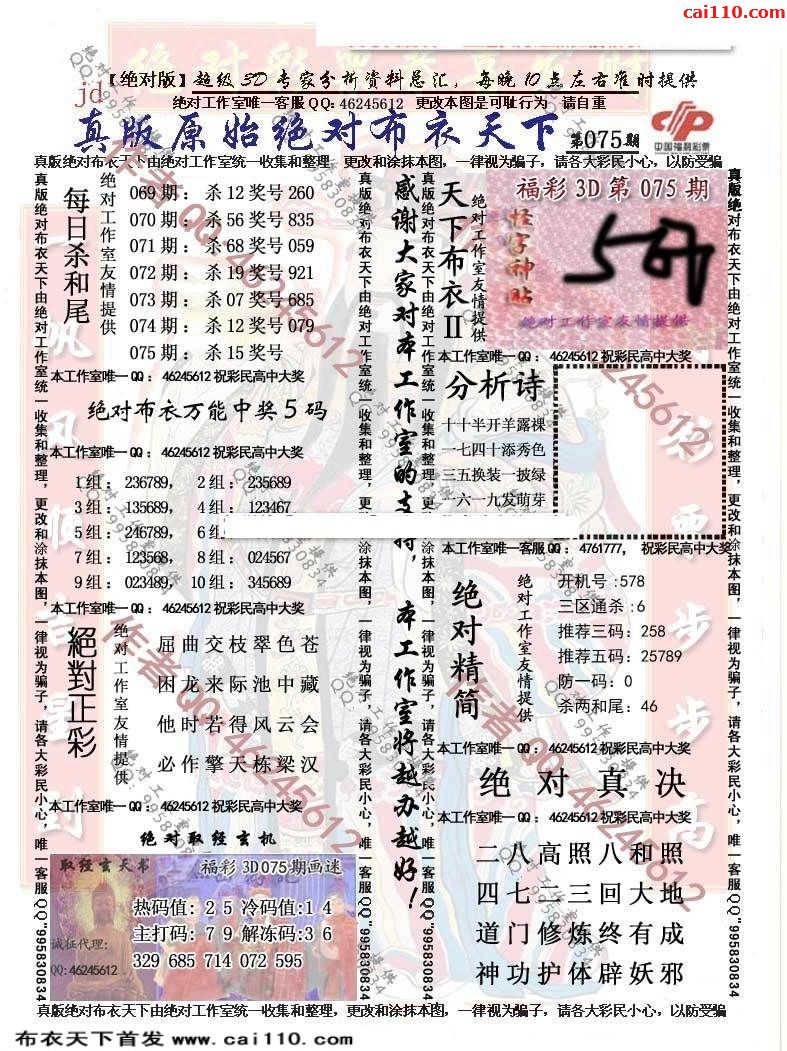 cai110.com
【绝对版】超级3D专家分析资料总汇，每晚10点左右准时提供
jd
绝对工作室唯一客服QQ: 46245612 更改本图是可耻行为 请自重
真版原始绝对布衣天下 第075期
中国福利彩票
真版绝对布衣天下由绝对工作室统一收集和整理，更改和涂抹本图，一律视为骗子，请各大彩民小心，以防受骗
真版绝对布衣天下由绝对工作室统一收集和整理，更改和涂抹本图，一律视为骗子，请各大彩民小心，唯一客服QQ"995830834
每日杀和尾
绝对工作室友情提供
069期：杀12奖号260
070期：杀56奖号835
071期：杀68奖号059
072期：杀19奖号921
073期：杀07奖号685
074期：杀12奖号079
075期：杀15奖号
本工作室唯一QQ：46245612祝彩民高中大奖
绝对布衣万能中奖5码
本工作室唯一QQ：46245612祝彩民高中大奖
1组：236789， 2组：235689
3组：135689， 4组：123467
5组：246789， 6组
7组：123568， 8组：024567
9组：023489， 10组：345689
本工作室唯一QQ：46245612祝彩民高中大奖
絕對正彩
绝对工作室友情提供
屈曲交枝翠色苍
困龙来际池中藏
他时若得风云会
必作擎天栋梁汉
本工作室唯一QQ：46245612祝彩民高中大奖
绝对取经玄机
取经玄天书
福彩3D075期画谜
热码值：25冷码值：14
主打码：79解冻码：36
329 685 714 072 595
诚征代理：
QQ:46245612
真版绝对布衣天下由绝对工作室统一收集和整理，更改和涂抹本图，一律视为骗子，请各大彩民小心，唯一客服QQ"995830834
感谢大家对本工作室的支持，本工作室将越办越好！
真版绝对布衣天下由绝对工作室统一收集和整理，更改和涂抹本图，一律视为骗子，请各大彩民小心，唯一客服QQ"995830834
天下布衣II
绝对工作室友情提供
福彩3D第075期
怪字神贴
绝对工作室友情提供
本工作室唯一QQ：46245612祝彩民高中大奖
分析诗
十十半开羊露裸
一七四十添秀色
三五换装一披绿
一六一九发萌芽
本工作室唯一客服QQ：4761777，祝彩民高中大奖
绝对精简
绝对工作室友情提供
开机号:578
三区通杀:6
推荐三码:258
推荐五码:25789
防一码:0
杀两和尾:46
本工作室唯一QQ：46245612祝彩民高中大奖
绝对真决
本工作室唯一QQ：46245612祝彩民高中大奖
二八高照八和照
四七三三回大地
道门修炼终有成
神功护体辟妖邪
真版绝对布衣天下由绝对工作室统一收集和整理，更改和涂抹本图，一律视为骗子，请各大彩民小心，唯一客服QQ"995830834
真版绝对布衣天下由绝对工作室统一收集和整理，更改和涂抹本图，一律视为骗子，请各大彩民小心，以防受骗
布衣天下首发 www.cai110.com